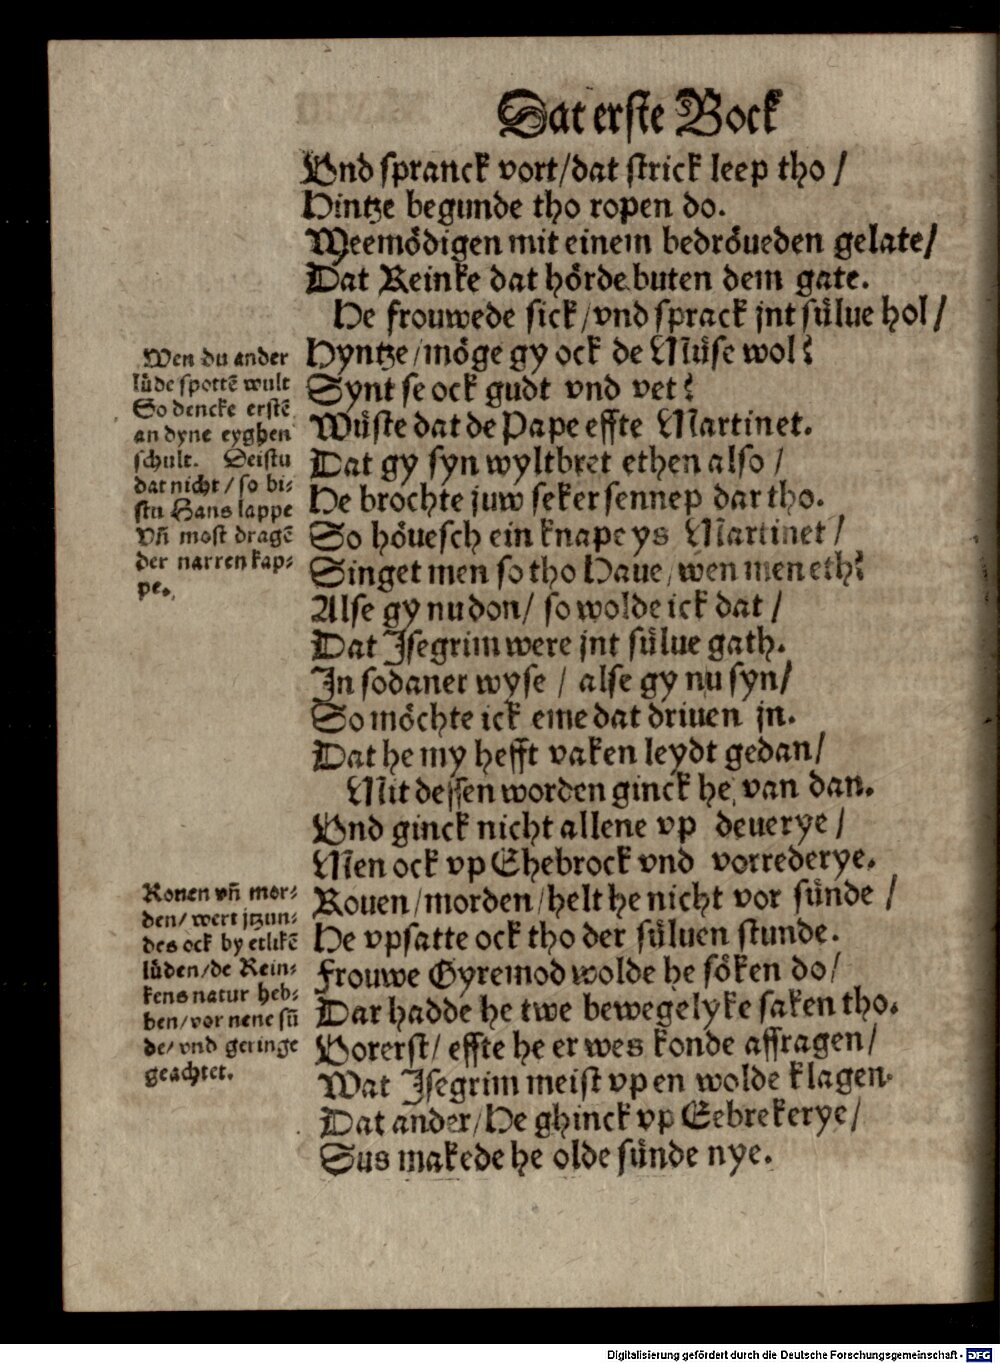 Dat erste Bock
Vnd spranck vort/dat strick leep tho /
Hintze begunde tho ropen do.
Weemoͤdigen mit einem bedroͤueden gelate/
Dat Reinke dat hoͤrde buten dem gate.
He frouwede sick/vnd sprack jnt suͤlue hol/
Hyntze/moͤge gy ock de Muͤse wol?
Synt se ock gudt vnd vet?
Wuͤste dat de Pape effte Martinet.
Dat gy syn wyltbret ethen also /
He brochte juw seker sennep dar tho.
So hoͤuesch ein knape ys Martinet /
Singet men so tho Haue/wen men eth?
Alse gy nu don/ so wolde ick dat /
Dat Isegrim were jnt suͤlue gath.
In sodaner wyse / alse gy nu syn/
So moͤchte ick eme dat driuen jn.
Dat he my hefft vaken leydt gedan/
Mit dessen worden ginck he van dan.
Vnd ginck nicht allene vp deuerye /
Men ock vp Ehebrock vnd vorrederye.
Rouen/morden/helt he nicht vor suͤnde /
He vpsatte ock tho der suͤluen stunde.
Frouwe Gyremod wolde he soͤken do/
Dar hadde he twe bewegelyke saken tho.
Vorerst/ effte he er wes konde affragen/
Wat Isegrim meist vp en wolde klagen.
Dat ander/He ghinck vp Eebrekerye/
Sus makede he olde suͤnde nye.
Wen du ander
luͤde spottē wult
So dencke erstē
an dyne eyghen
schult. Deistu
dat nicht/so bi⸗
stu Hans lappe
Vñ most dragē
der narren kap⸗
pe.
Rouen vñ mor⸗
den/ wert jtzun⸗
des ock by etlikē
luͤden/de Rein⸗
kens natur heb⸗
ben/vor nene suͤ̄
de/vnd geringe
geachtet.
Digitalisierung gefördert durch die Deutsche Forschungsgemeinschaft - DFG